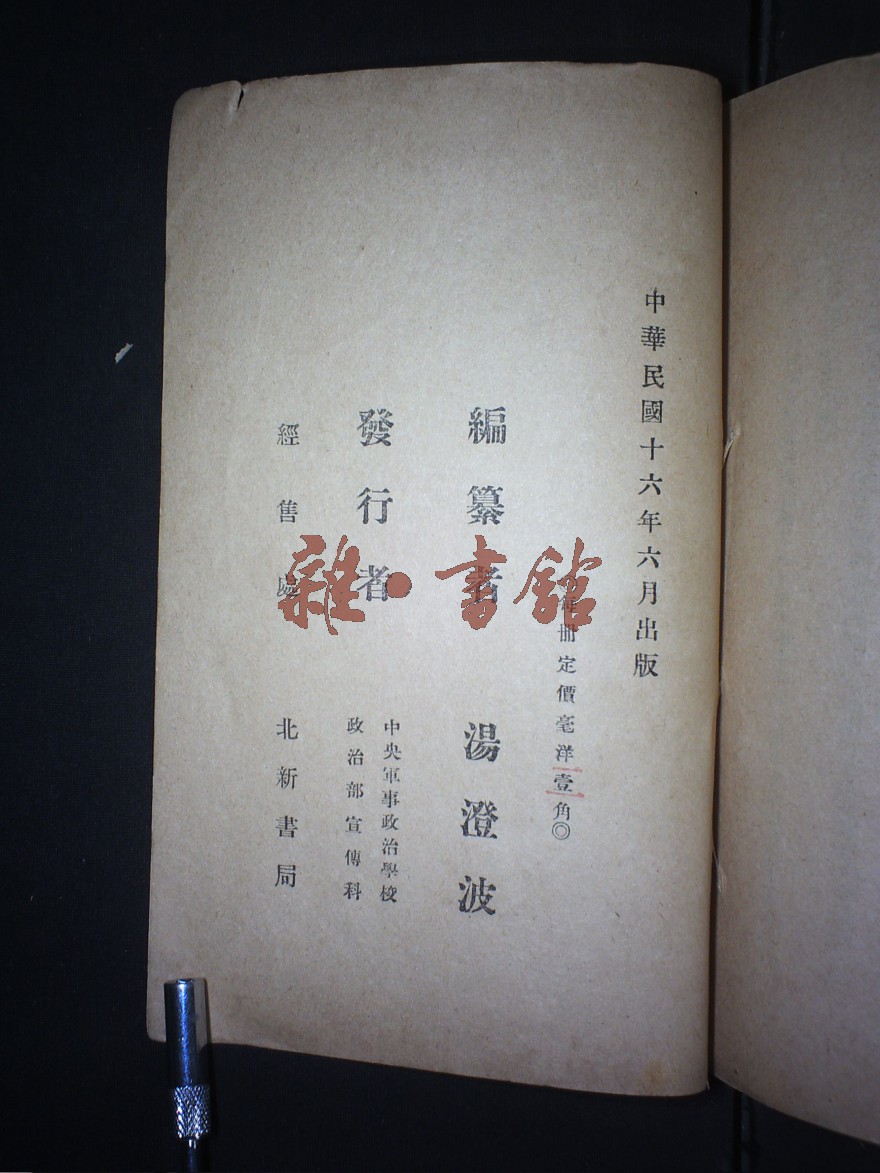 中華民國十六年六月出版
每冊定價毫洋壹角◎
編纂者 湯澄波
發行者 中央軍事政治學校
政治部宣傳科
經售處 北新書局
雜·書館